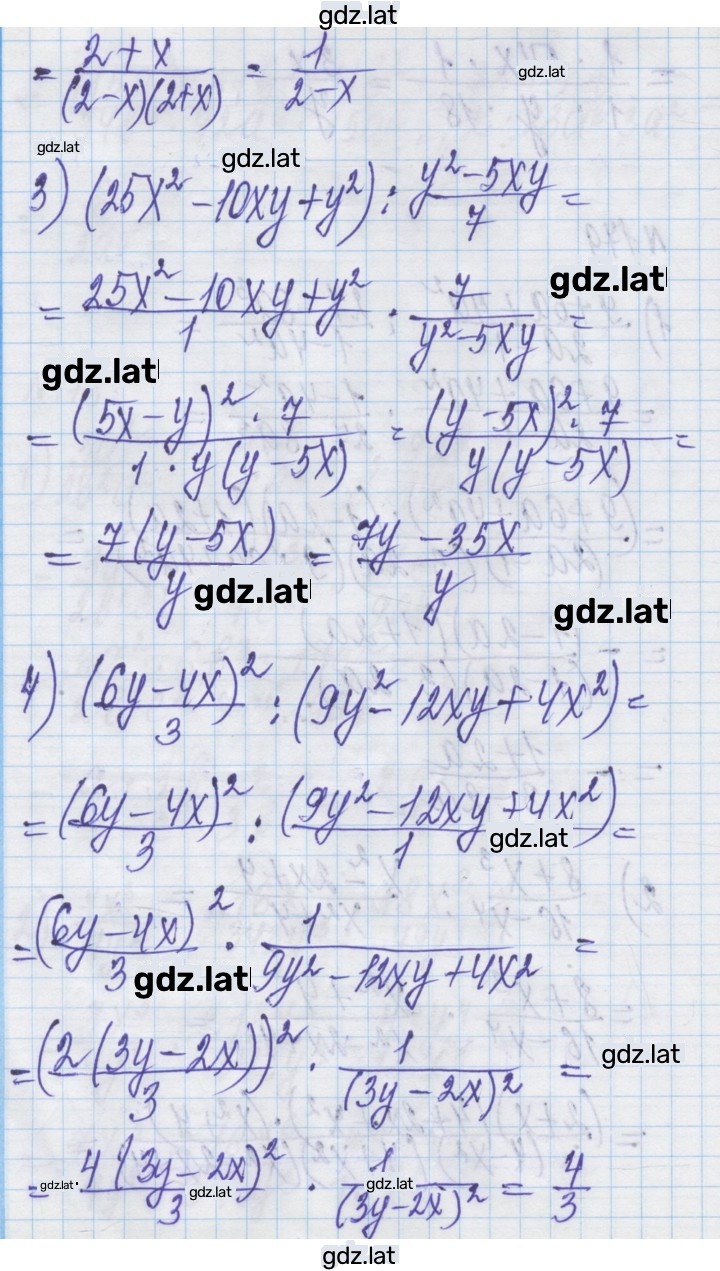 gdz.lat
= (2+x)/((2-x)(2+x)) = 1/(2-x)
gdz.lat
gdz.lat
gdz.lat
3) (25x² - 10xy + y²) : (y² - 5xy)/7 =
gdz.lat
= (25x² - 10xy + y²)/1 · 7/(y² - 5xy) =
gdz.lat
= ((5x - y)² · 7)/(1 · y(y - 5x)) = ((y - 5x)² · 7)/(y(y - 5x)) =
= 7(y - 5x)/y = (7y - 35x)/y
gdz.lat
gdz.lat
4) (6y - 4x)²/3 : (9y² - 12xy + 4x²) =
= (6y - 4x)²/3 : (9y² - 12xy + 4x²)/1 =
gdz.lat
= (6y - 4x)²/3 · 1/(9y² - 12xy + 4x2) =
gdz.lat
= (2(3y - 2x))²/3 · 1/(3y - 2x)² =
gdz.lat
= 4(3y - 2x)²/3 · 1/(3y - 2x)² = 4/3
gdz.lat
gdz.lat
gdz.lat
gdz.lat